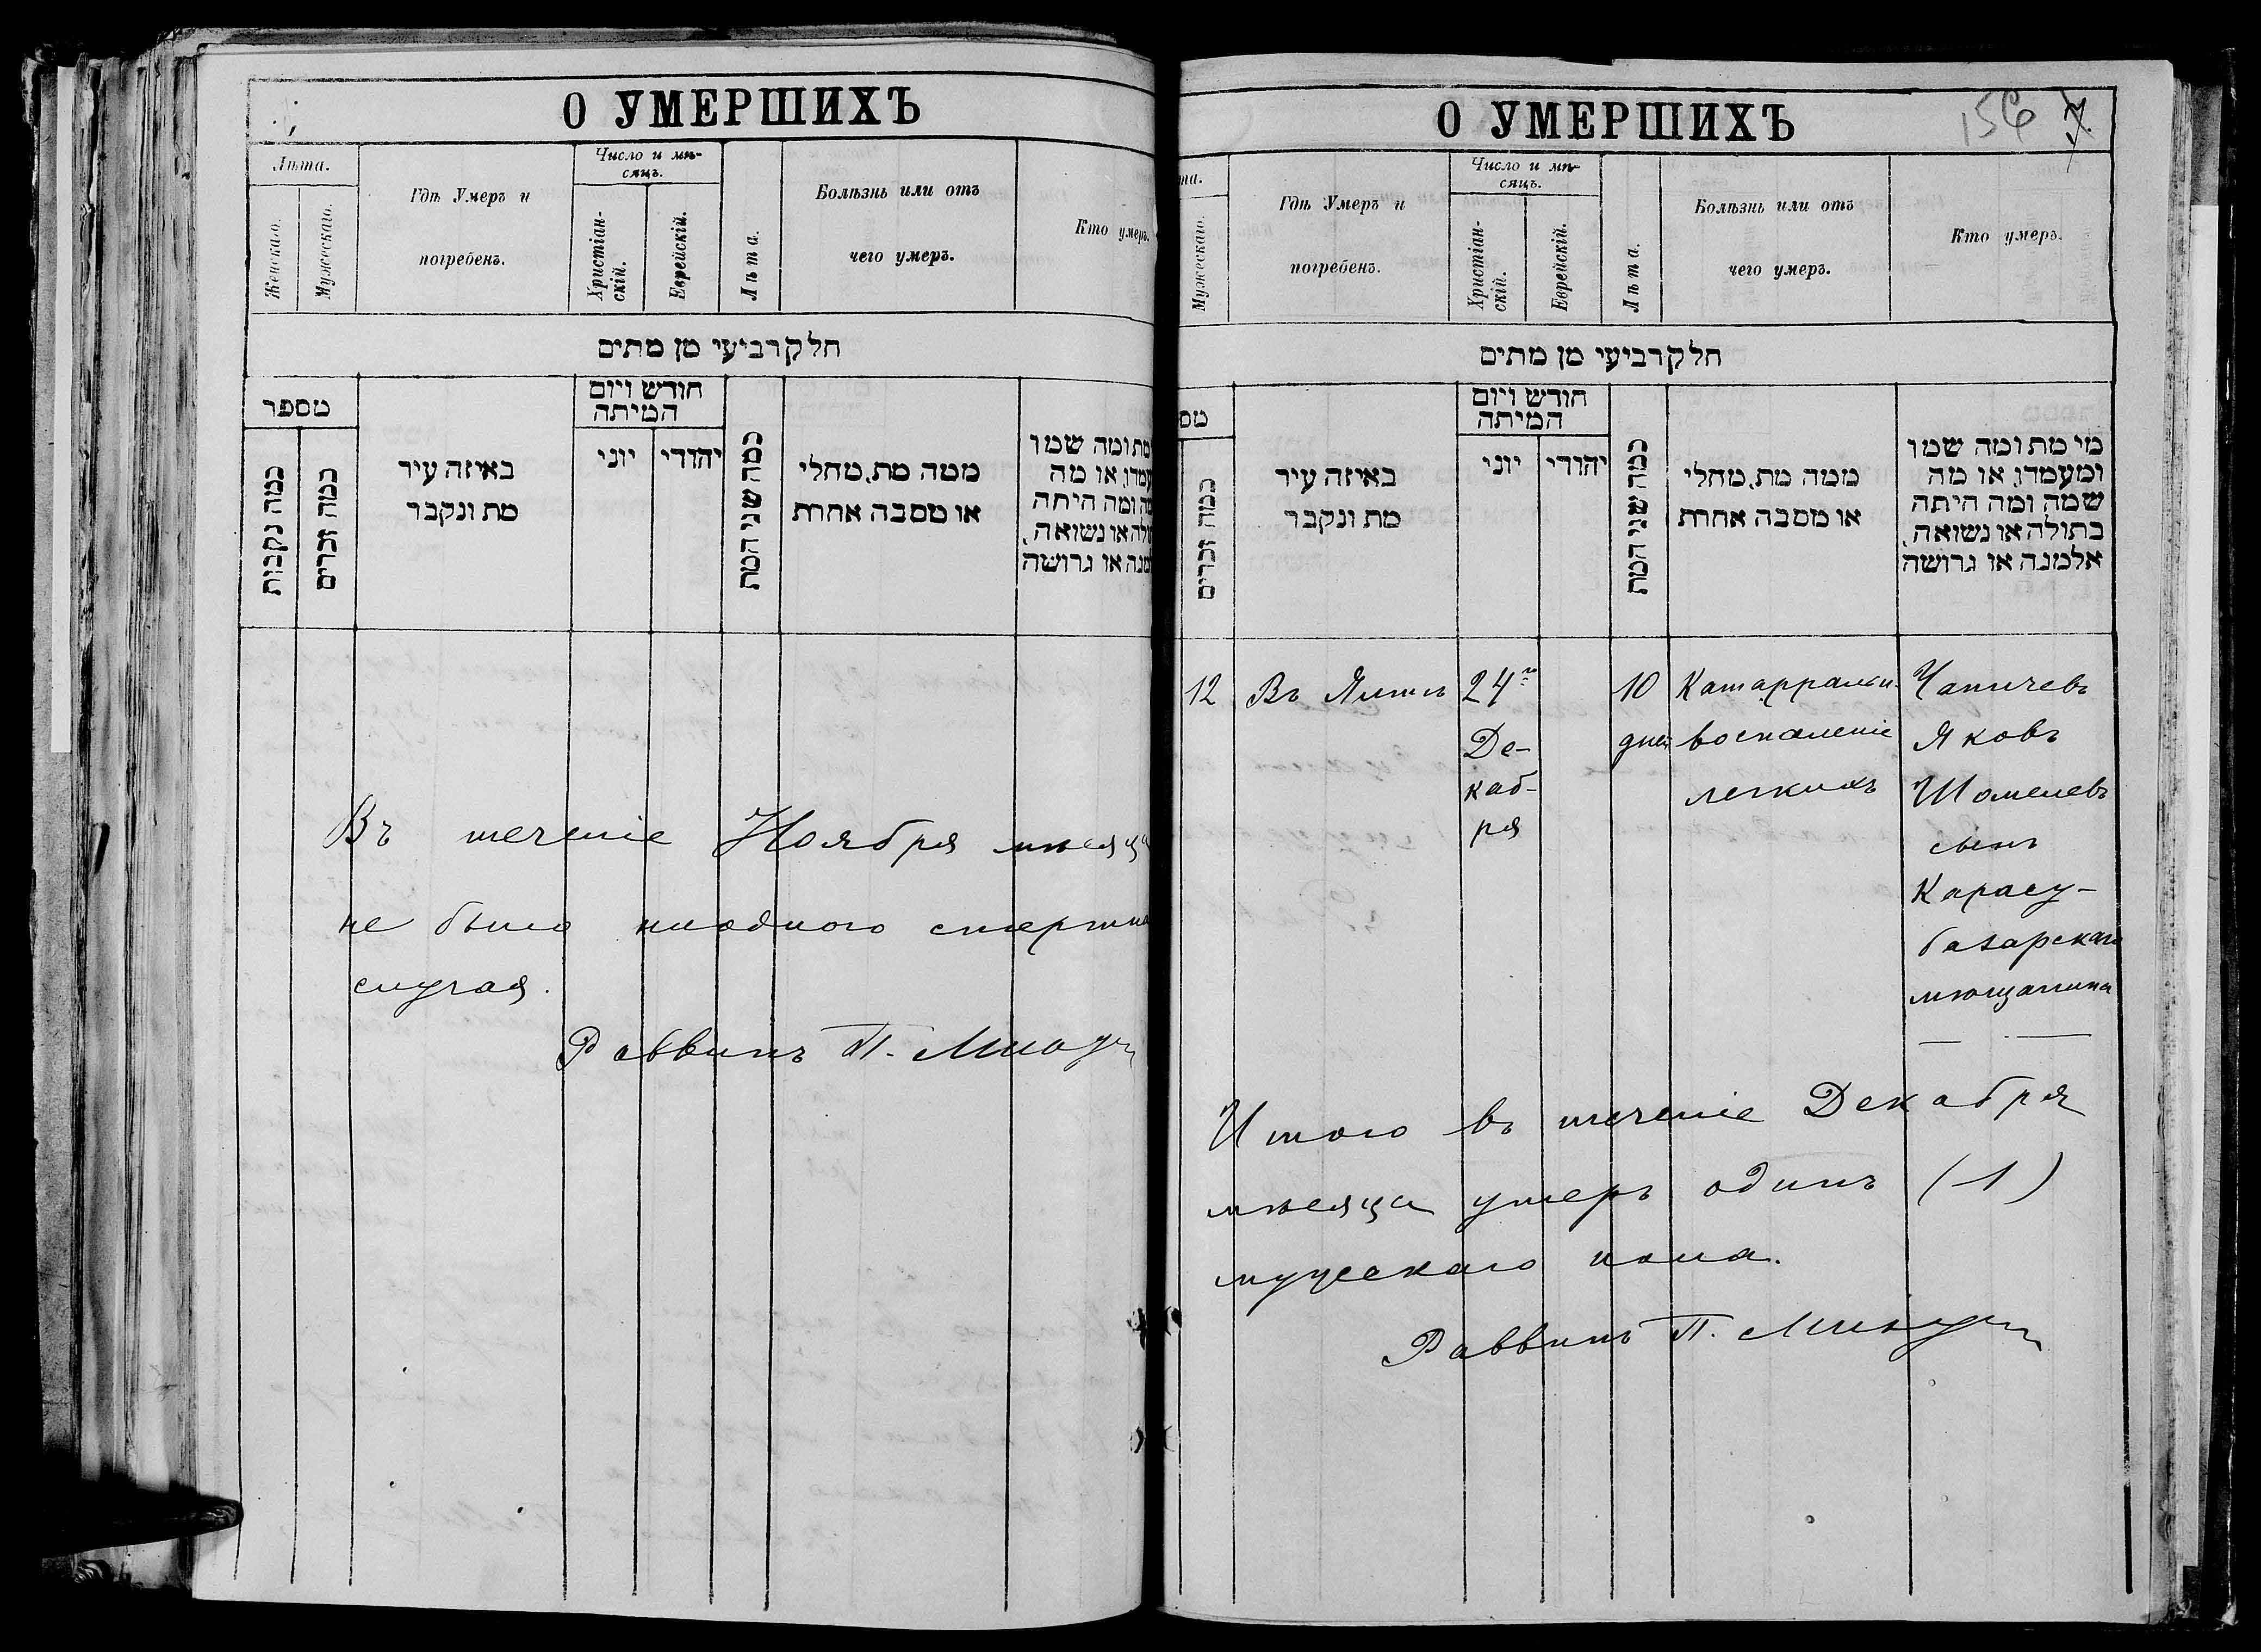 О УМЕРШИХЪ
Лѣта.
Женскаго.
Мужескаго.
Гдѣ Умеръ и
погребенъ.
Число и мѣ-
сяцъ.
Христіан-
скій.
Еврейскій.
Лѣта.
Болѣзнь или отъ
чего умеръ.
Кто умеръ.
חלק רביעי מן מתים
מספר
כמה נקבות
כמה זכרים
באיזה עיר
מת ונקבר
חודש ויום
המיתה
יוני
יהודי
כמה שני המת
ממה מת, מחלי
או מסבה אחרת
מת ומה שמו
עמדו, או מה
מה ומה היתה
ולה או נשואה,
מנה או גרושה
Въ теченіе Ноября мѣсяца
не было ниодного смертна
случая.
Раввинъ П.
О УМЕРШИХЪ
156
7.
та.
Мужескаго.
Гдѣ Умеръ и
погребенъ.
Число и мѣ-
сяцъ.
Христіан-
скій.
Еврейскій.
Лѣта.
Болѣзнь или отъ
чего умеръ.
Кто умеръ.
חלק רביעי מן מתים
מס
כמה זכרים
באיזה עיר
מת ונקבר
חודש ויום
המיתה
יוני
יהודי
כמה שני המת
ממה מת, מחלי
או מסבה אחרת
מי מת ומה שמו
ומעמדו, או מה
שמה ומה היתה
בתולה או נשואה,
אלמנה או גרושה
12
Въ Ялтѣ
24го
Де-
каб-
ря
10
дней
Катарральн.
воспаленіе
легкихъ
Чапичевъ
Яковъ
Шомелевъ
сынъ
Карасу-
базарскаго
мѣщанина
Итого въ теченіе Декабря
мѣсяца умеръ одинъ (1)
мужескаго пола.
Раввинъ П.